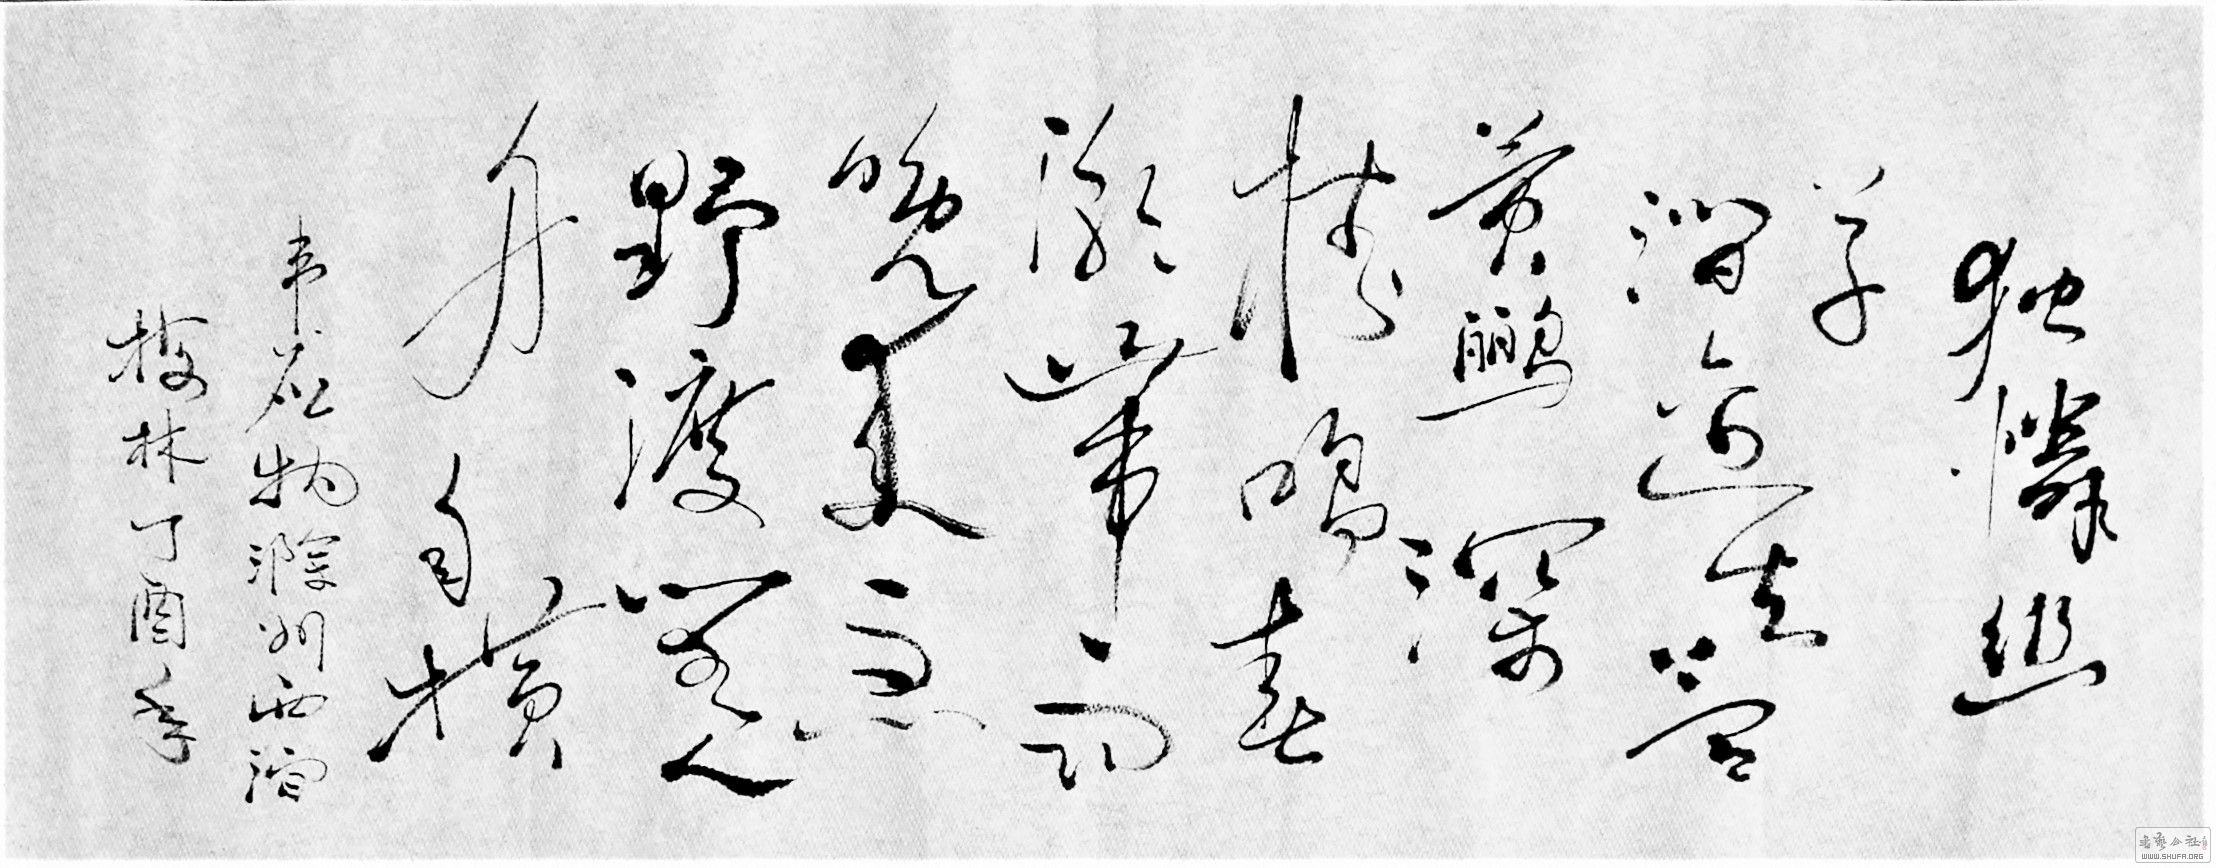 独憐幽
草
澗邊生上有
黄鹂深
樹鳴春
潮帶雨
晚来急
野渡無人
舟自横
韦应物滁州西涧
林丁酉年
書藝公社
WWW.SHUFA.ORG